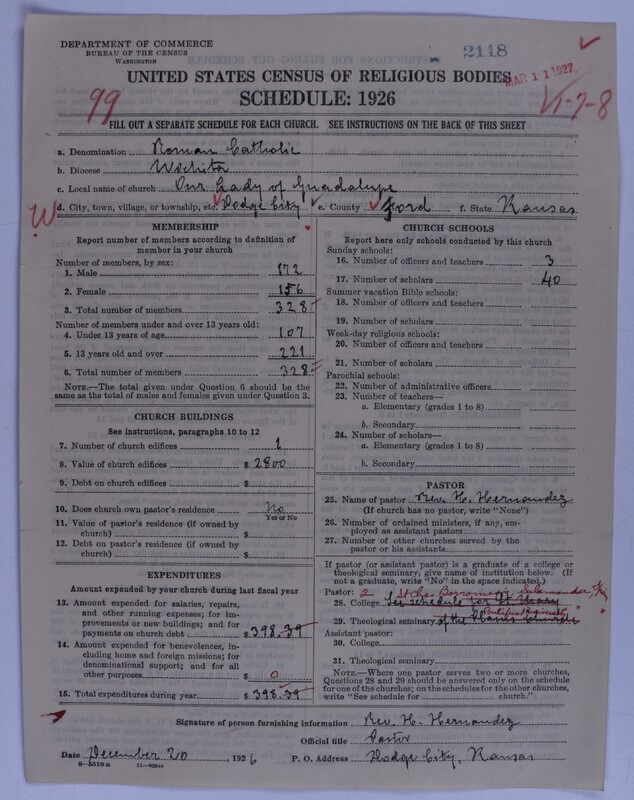 DEPARTMENT OF COMMERCE
BUREAU OF THE CENSUS
WASHINGTON
2118
MAR 11 1927
UNITED STATES CENSUS OF RELIGIOUS BODIES
99
SCHEDULE: 1926
1-7-8
FILL OUT A SEPARATE SCHEDULE FOR EACH CHURCH. SEE INSTRUCTIONS ON THE BACK OF THIS SHEET
a. Denomination Roman Catholic
b. Diocese Wichita
c. Local name of church Our Lady of Guadalupe
W d. City, town, village, or township, etc. Dodge City e. County Ford f. State Kansas
MEMBERSHIP
Report number of members according to definition of
member in your church
Number of members, by sex:
1. Male 172
2. Female 156
3. Total number of members 328
Number of members under and over 13 years old:
4. Under 13 years of age 107
5. 13 years old and over 221
6. Total number of members 328
NOTE.—The total given under Question 6 should be
same as the total of males and females given under Question 3.
CHURCH BUILDINGS
See instructions, paragraphs 10 to 12
7. Number of church edifices 1
8. Value of church edifices $ 2800
9. Debt on church edifices $
10. Does church own pastor's residence No
Yes or No
11. Value of pastor's residence (if owned by
church) $
12. Debt on pastor's residence (if owned by
church) $
EXPENDITURES
Amount expended by your church during last fiscal year
13. Amount expended for salaries, repairs,
and other running expenses; for im-
provements or new buildings; and for
payments on church debt $ 398.39
14. Amount expended for benevolences, in-
cluding home and foreign missions; for
denominational support; and for all
other purposes $ 0
15. Total expenditures during year $ 398.39
CHURCH SCHOOLS
Report here only schools conducted by this church
Sunday schools:
16. Number of officers and teachers 3
17. Number of scholars 40
Summer vacation Bible schools:
18. Number of officers and teachers
19. Number of scholars
Week-day religious schools:
20. Number of officers and teachers
21. Number of scholars
Parochial schools:
22. Number of administrative officers
23. Number of teachers—
a. Elementary (grades 1 to 8)
b. Secondary
24. Number of scholars—
a. Elementary (grades 1 to 8)
b. Secondary
PASTOR
25. Name of pastor Rev. H. Hernandez
(If church has no pastor, write "None")
26. Number of ordained ministers, if any, em-
ployed as assistant pastors
27. Number of other churches served by the
pastor or his assistants
If pastor (or assistant pastor) is a graduate of a college or
theological seminary, give name of institution below. (If
not a graduate, write "No" in the space indicated.)
Pastor: 2
28. College See schedule for
29. Theological seminary of the
Assistant pastor:
30. College
31. Theological seminary
NOTE.—Where one pastor serves two or more churches,
Questions 28 and 29 should be answered only on the schedule
for one of the churches; on the schedules for the other churches,
write "See schedule for church."
Signature of person furnishing information Rev. H. Hernandez
Official title Pastor
Date December 20, 1926 P. O. Address Dodge City, Kansas